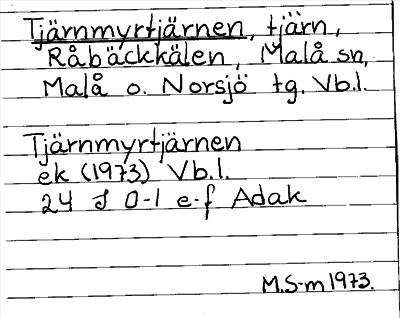 Tjärnmyrtjärnen, tjärn,
Råbäckkälen, Malå sn,
Malå o. Norsjö tg. Vb.l.
Tjärnmyrtjärnen
ek (1973) Vb.l.
24 J 0-1 e-f Adak
M.S-m 1973.